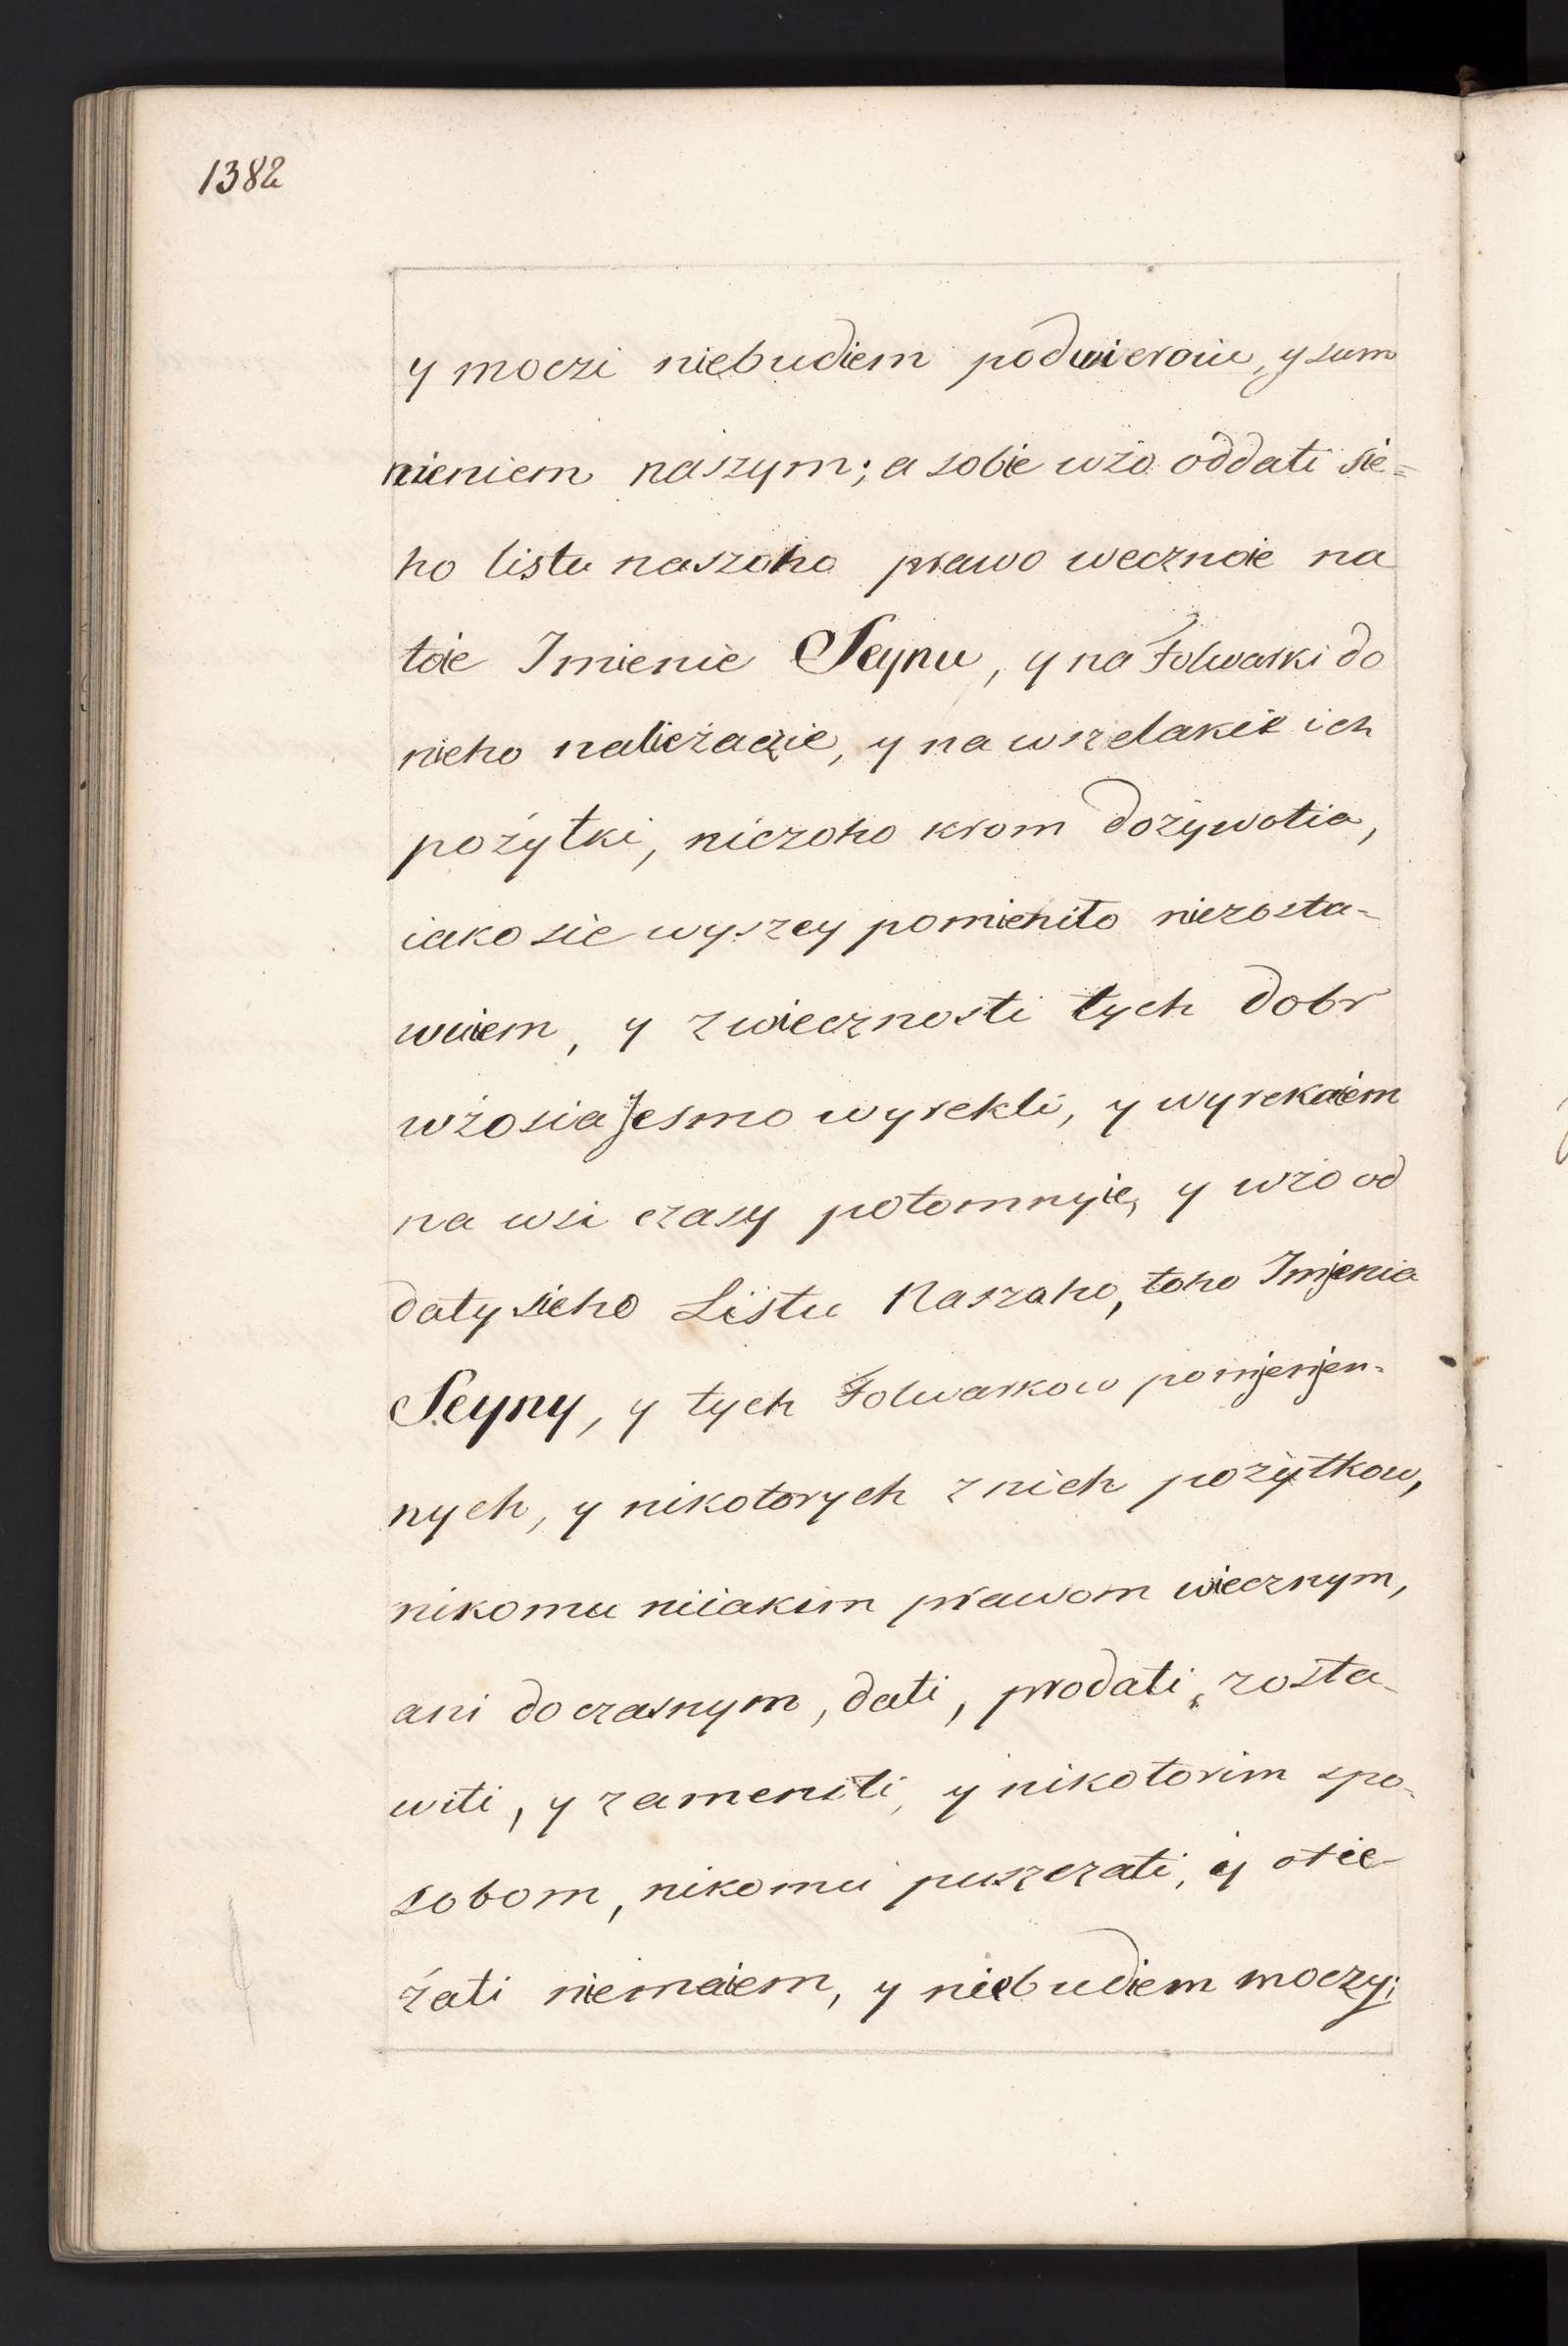 1382
y moczi niebudiem pod wieroiu, y sum
nieniem naszym; a sobie wżo oddati sie=
ho listu naszoho prawo wecznoie na
toie Imienie Seynu, y na Folwarki do
nieho nalieżaczie, y na wszelakie ich
pożytki, niczoho krom dożywotia,
iako sie wyszey pomieniło niezosta-
wuiem, y z wiecznosti tych dobr
wżosia Jesmo wyrekli, y wyrekaiem
na wsi czasy potomnyie, y wżo od
daty sieho Listu Naszaho, toho Imjenia
Seyny, y tych Folwarkow pomjenjen-
nych, y nikotorych z nich pożytkow,
nikomu niiakim prawom wiecznym,
ani doczasnym, dati, prodati, zosta-
witi, y zameniti, y nikotorim spo-
sobom, nikomu puszczati, y otie-
żati niemaiem, y niebudiem moczy;